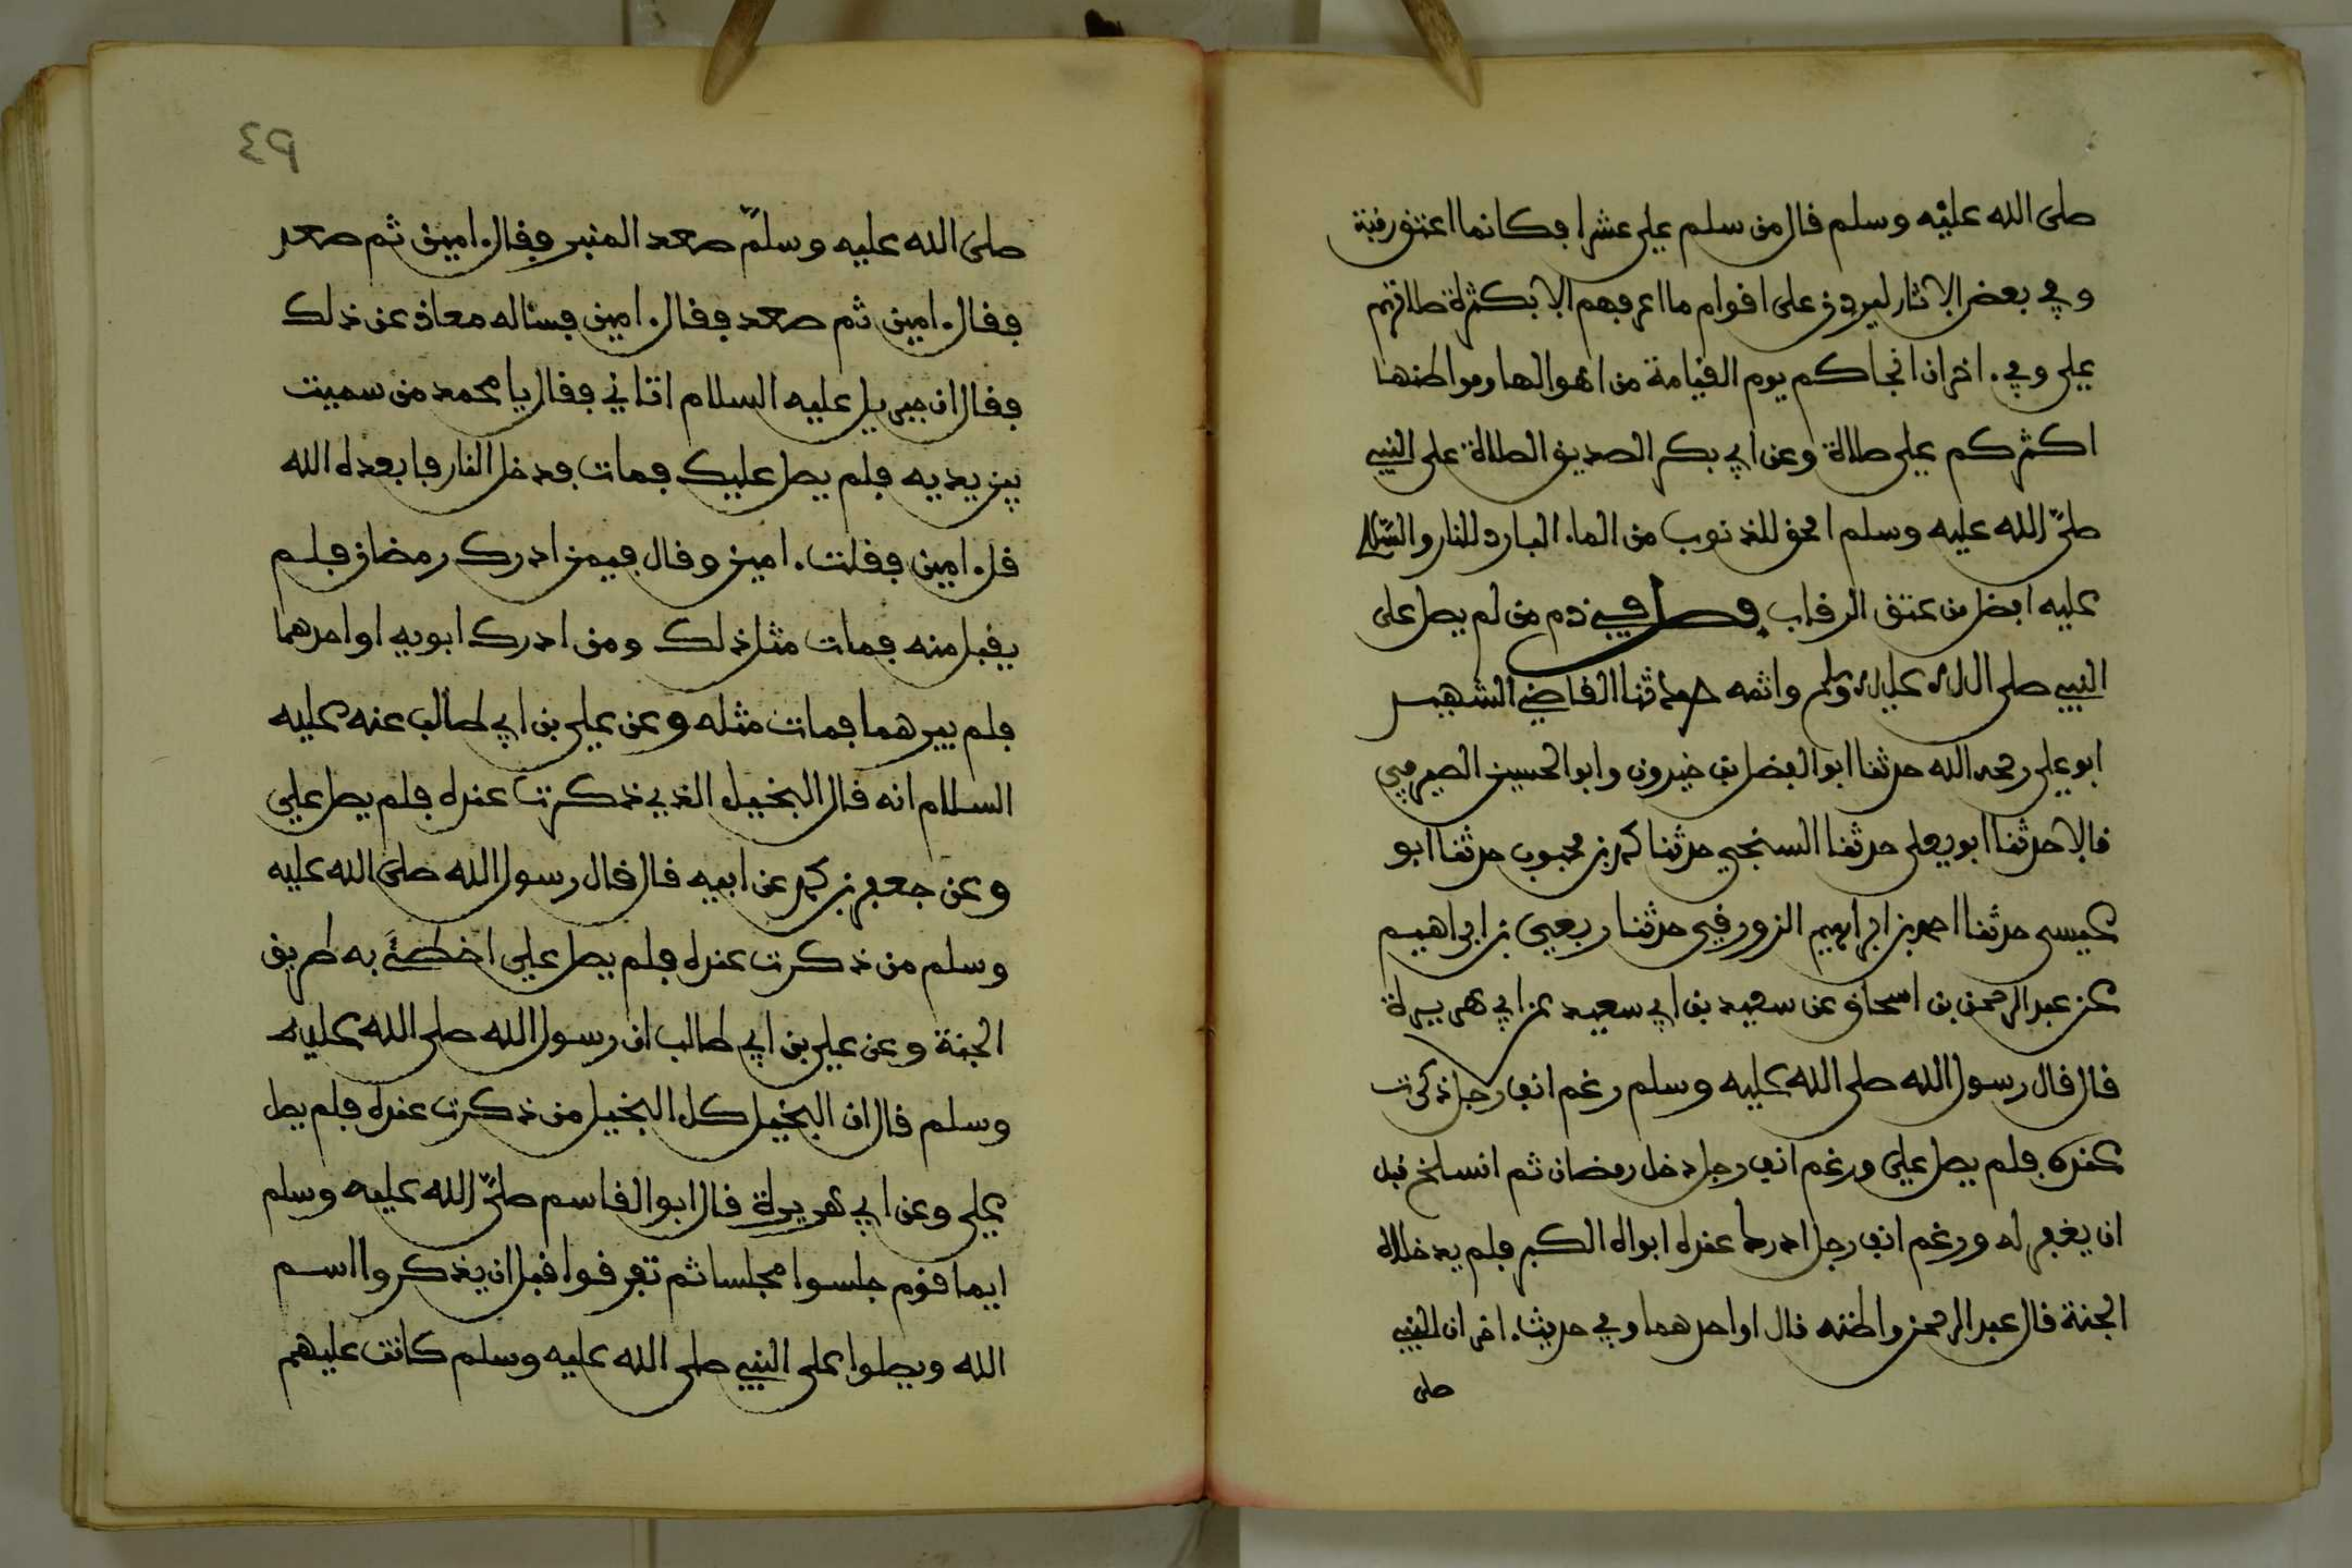 صلى الله عليه وسلم قال من سلم علي عشرا فكانما اعتق رقبة
وفي بعض الاثار ليردن على اقوام ما اعرفهم الا بكثرة صلاتهم
علي وفي ءاخر ان انجاكم يوم القيامة من اهوالها ومواطنها
اكثركم علي صلاة وعن ابي بكر الصديق الصلاة على النبي
صلى الله عليه وسلم امحق للذنوب من الماء البارد للنار والسلام
عليه افضل من عتق الرقاب فصل في ذم من لم يصل على
النبي صلى الله عليه وسلم واثمه حدثنا القاضي الشهيد
ابو علي رحمه الله حدثنا ابو الفضل بن خيرون وابو الحسين الصيرفي
قالا حدثنا ابو يعلى حدثنا السنجي حدثنا محمد بن محبوب حدثنا ابو
عيسى حدثنا احمد بن ابراهيم الزورقي حدثنا ربعي بن ابراهيم
عن عبد الرحمن بن اسحاق عن سعيد بن ابي سعيد عن ابي هريرة
قال قال رسول الله صلى الله عليه وسلم رغم انف رجل ذكرت
عنده فلم يصل علي ورغم انف رجل دخل رمضان ثم انسلخ قبل
ان يغفر له ورغم انف رجل ادرك عنده ابواه الكبر فلم يدخلاه
الجنة قال عبد الرحمن واظنه قال او احدهما وفي حديث ءاخر ان النبي
صلى
٩٤
صلى الله عليه وسلم صعد المنبر فقال ءامين ثم صعد
فقال ءامين ثم صعد فقال ءامين فسئاله معاذ عن ذلك
فقال ان جبريل عليه السلام اتاني فقال يا محمد من سميت
بين يديه فلم يصل عليك فمات فدخل النار فابعده الله
قل ءامين فقلت ءامين وقال فيمن ادرك رمضان فلم
يقبل منه فمات مثل ذلك ومن ادرك ابويه او احدهما
فلم يبرهما فمات مثله وعن علي بن ابي طالب عنه عليه
السلام انه قال البخيل الذي ذكرت عنده فلم يصل علي
وعن جعفر بن محمد عن ابيه قال قال رسول الله صلى الله عليه
وسلم من ذكرت عنده فلم يصل علي اخطئ به طريق
الجنة وعن علي بن ابي طالب ان رسول الله صلى الله عليه
وسلم قال ان البخيل كل البخيل من ذكرت عنده فلم يصل
علي وعن ابي هريرة قال ابو القاسم صلى الله عليه وسلم
ايما قوم جلسوا مجلسا ثم تفرقوا قبل ان يذكروا اسم
الله ويصلوا على النبي صلى الله عليه وسلم كانت عليهم